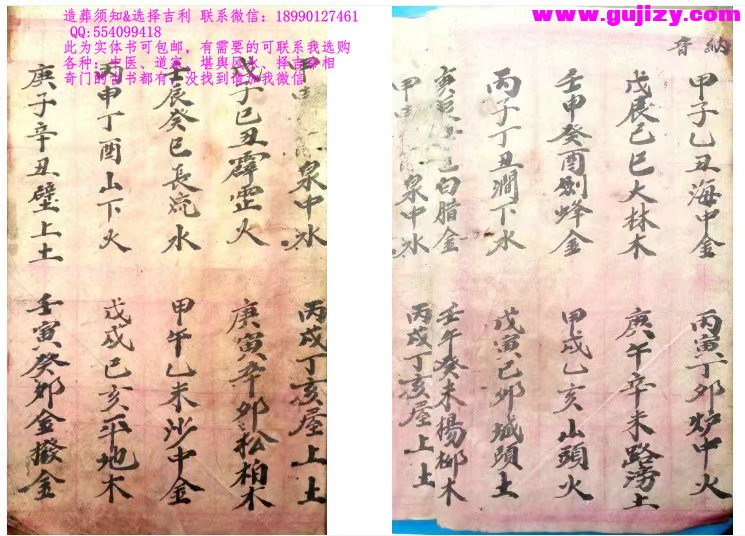 造葬须知&选择吉利 联系微信：18990127461
QQ:554099418
此为实体书可包邮，有需要的可联系我选购
各种：中医、道家、堪舆风水、择吉命相
奇门的古书都有，没找到请加我微信
www.gujizy.com
納音
甲子乙丑海中金
丙寅丁卯炉中火
戊辰己巳大林木
庚午辛未路滂土
壬申癸酉劍蜂金
甲戌乙亥山頭火
丙子丁丑澗下水
戊寅己卯城頭土
庚辰 白腊金
壬午癸未楊柳木
甲申 泉中水
丙戌丁亥屋上土
甲 泉中水
丙戌丁亥屋上土
戊子己丑霹雳火
庚寅辛卯松柏木
壬辰癸巳長流水
甲午乙未沙中金
丙申丁酉山下火
戊戌己亥平地木
庚子辛丑壁上土
壬寅癸卯金撥金